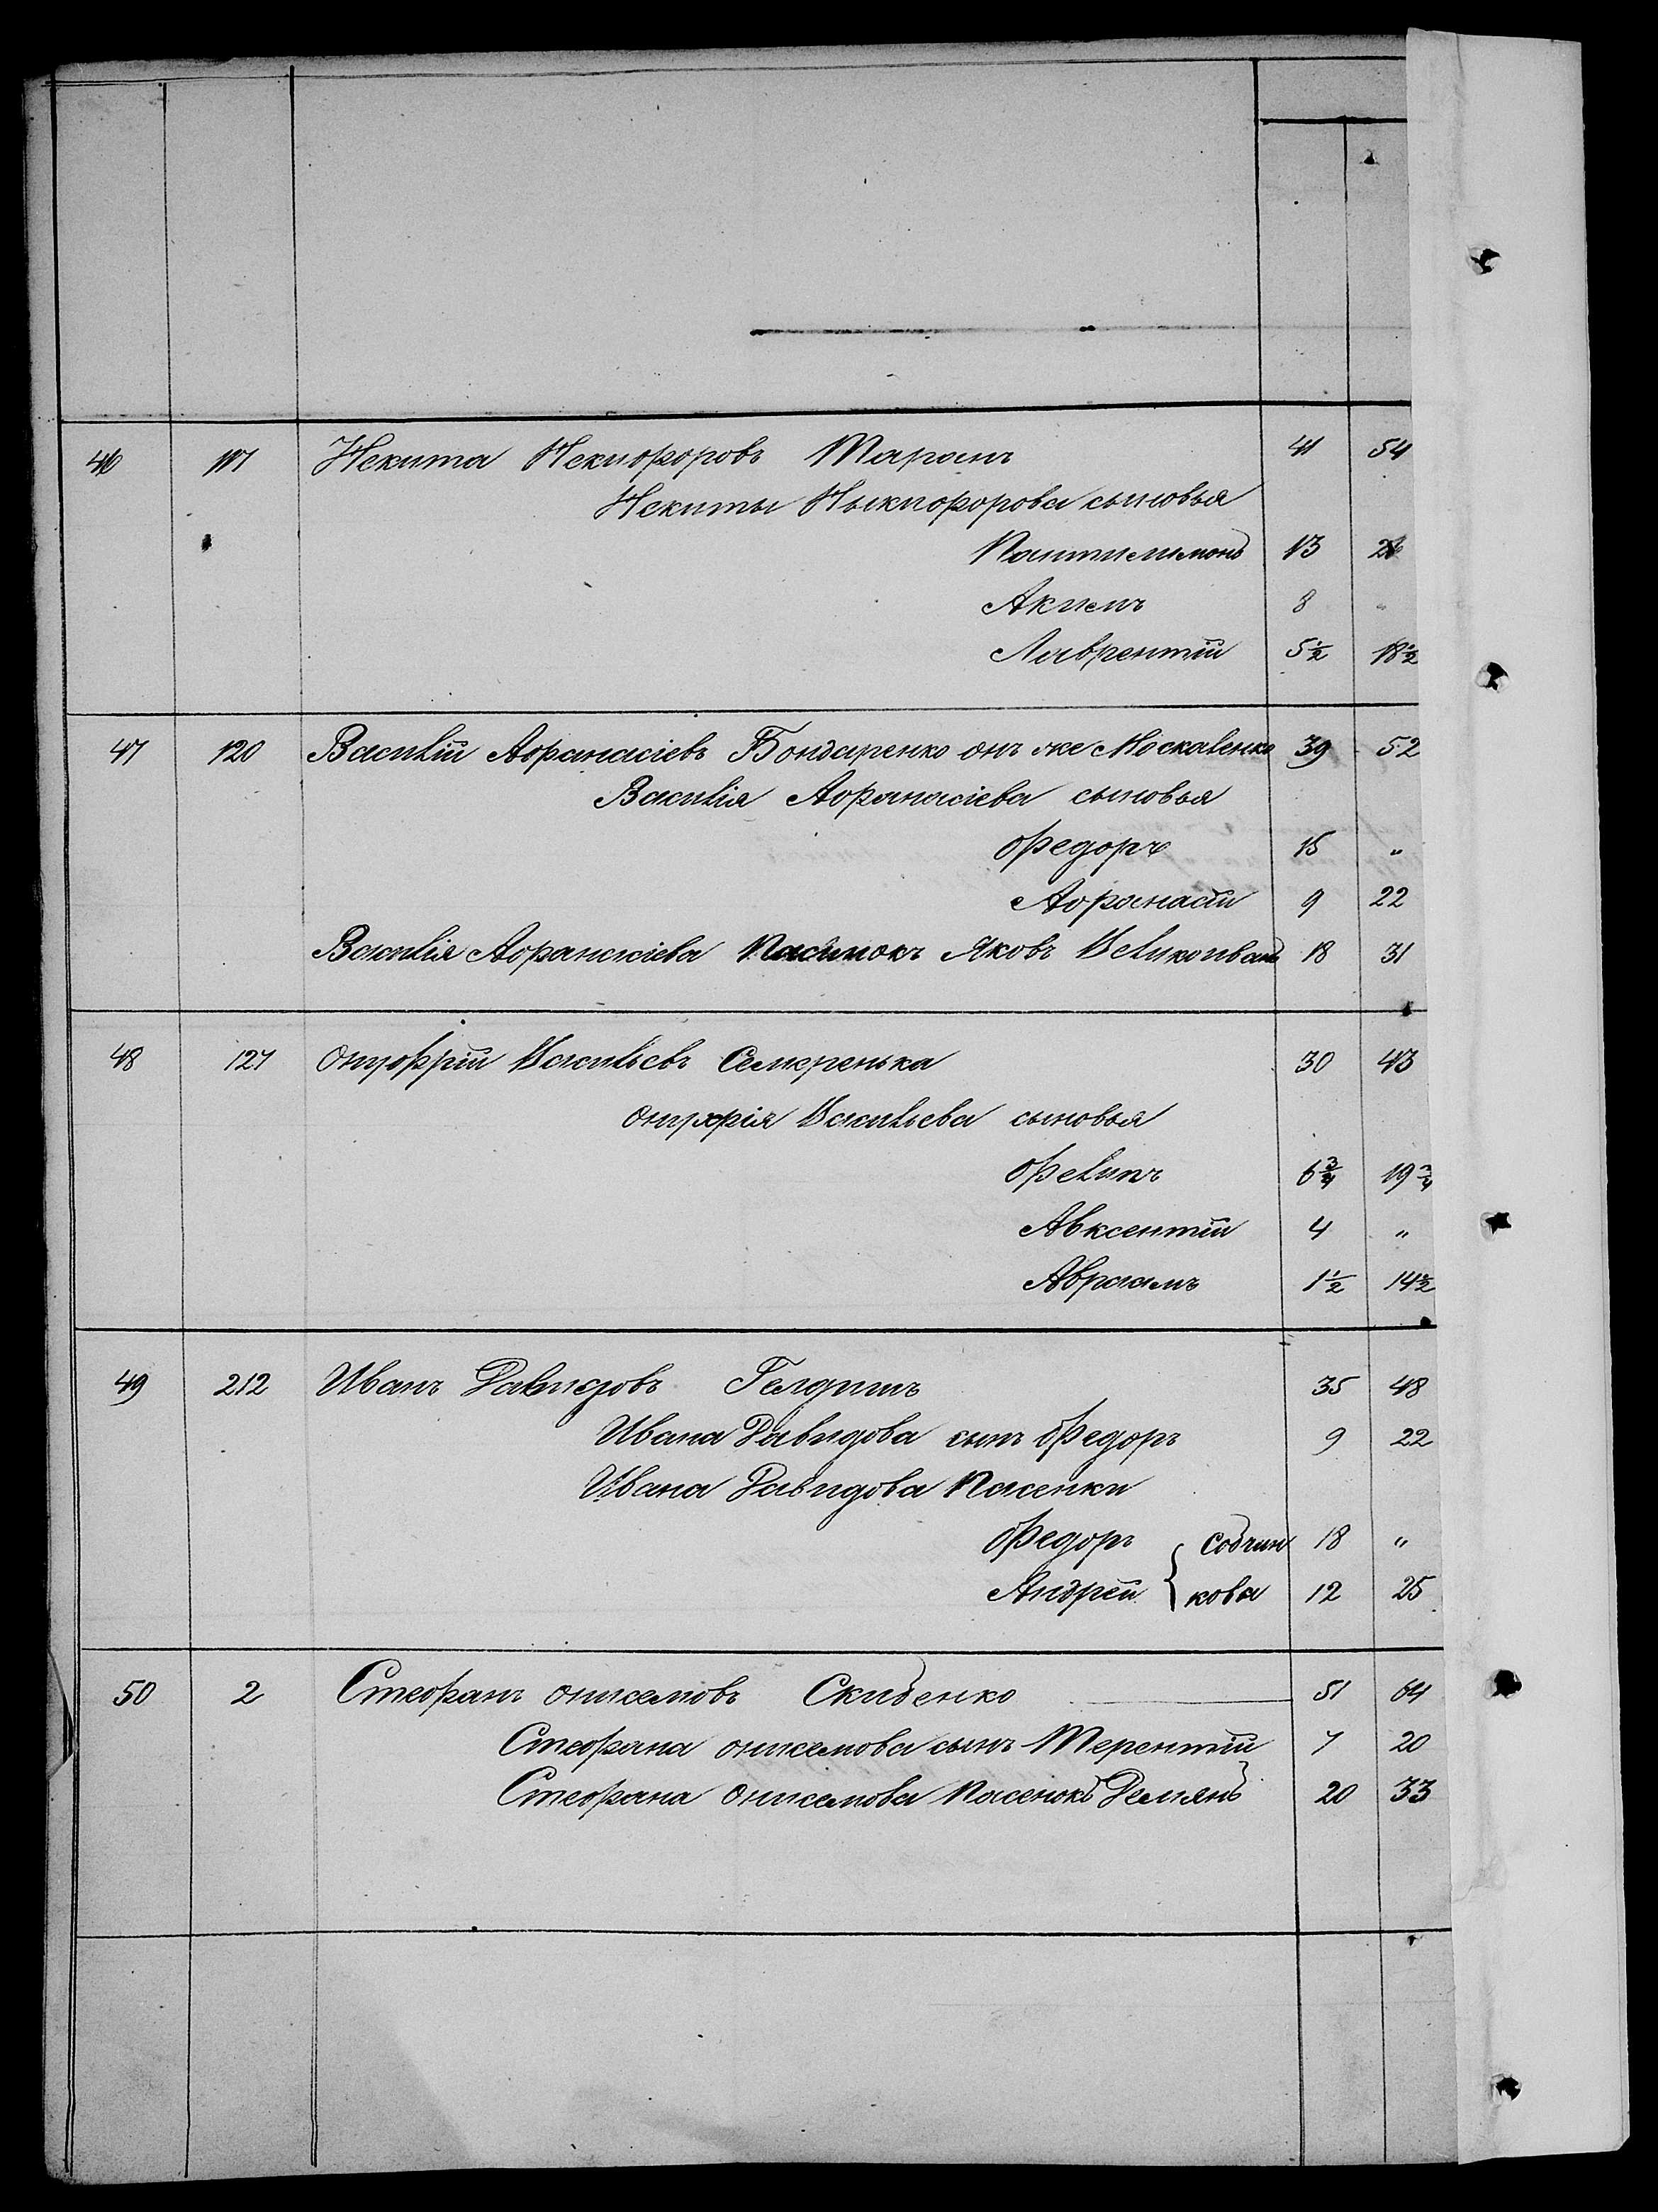 46 117 Некита Некифоровъ Таранъ 41 54
Некиты Ныкифорова сыновья
Пантилимонъ 13 26
Акимъ 8 "
Лаврентій 5½ 18½
47 120 Василій Афанасіевъ Бондаренко онъ же Москаленко 39 52
Василія Афанасіева сыновья
Федоръ 15 "
Афанасій 9 22
Василія Афанасіева Пасинокъ Яковъ 18 31
48 127 Онуфрій Васильевъ Семеренька 30 43
Онуфрія Васильева сыновья
Фелипъ 6¾ 19¾
Авксентій 4 "
Авраамъ 1½ 14½
49 212 Иванъ Давидовъ 35 48
Ивана Давидова сынъ Федоръ 9 22
Ивана Давидова Пасенки
Федоръ { Собчин 18 "
Андрей { кова 12 25
50 2 Стефанъ Онисемовъ Скибенко 51 64
Стефана Онисемова сынъ Терентій 7 20
Стефана Онисемова Пасенокъ Демянъ 20 33